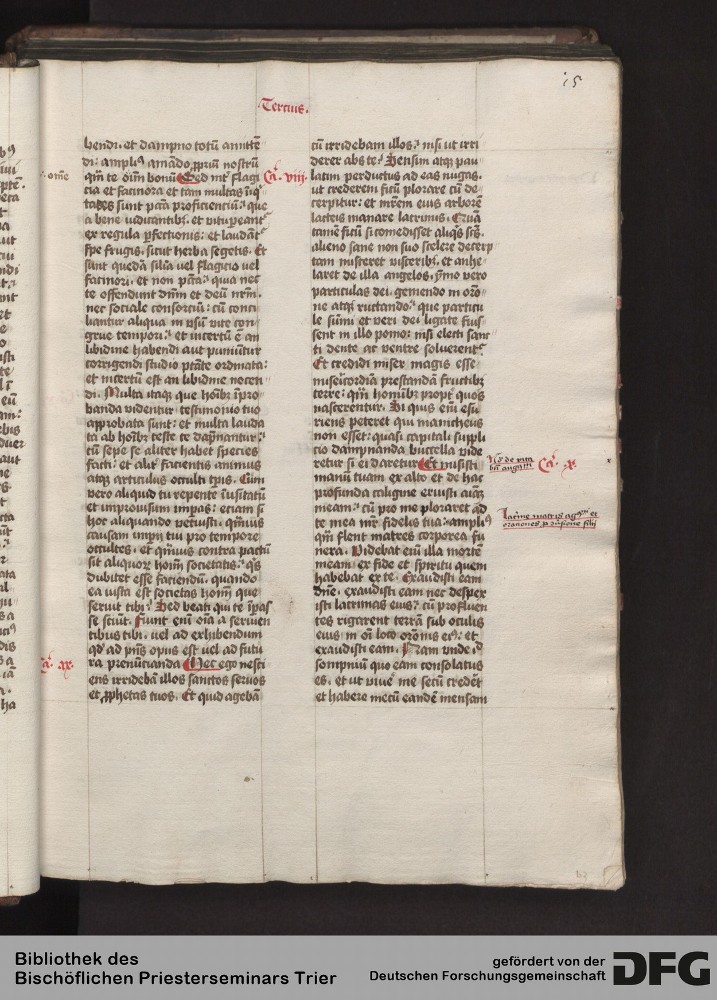 15
Tercius.
bendi. et dampno totū amitte
di: ampliꝰ amādo ꝓpriū nostrū
qm̄ te oīm bonū Sed int̄ flagi
cia et facinora et tam multas īiqͥ
tates sunt pctā proficienciū: que
a bene iudicantibꝫ et vituperant̄
ex regula ꝑfectionis: et laudāt̄
spe frugis. sicut herba segetis. Et
sunt quedā silia uel flagicio uel
facinori. et non pctā: quia nec
te offendunt dnm̄ et deū nrm̄.
nec sociale consorciū: cū conci
liantur aliqua in vsū vite con
grue tempori: et incertū ē an
libidine habendi aut puniūtur
corrigendi studio ptāte ordinata:
et incertū est an libidine nocen
di. Multa itaqꝫ que hoībꝫ īpro
banda videntur testimonio tuo
approbata sunt: et multa lauda
ta ab hoībꝫ teste te dāpnantur:
cū sepe se aliter habet species
facti: et aliꝰ facientis animus
atqꝫ articulus occulti tꝑis. Cum
vero aliquid tu repente īusitatū
et improuisum impas: eciam si
hoc aliquando vetuisti. qmuis
causam impii tui pro tempore
occultes. et qmuis contra pactū
sit aliquoꝝ hoīm societatis: qͥs
dubitet esse faciendū. quando
ea iusta est societas hoīm que
seruit tibi: Sed beati qui te īpas
se sciūt. Fiunt enī oīa a seruien
tibus tibi. uel ad exhibendum
qd ad pn̄s opus est uel ad futu
ra prenūcianda Hec ego nesci
ens irridebā illos sanctos seruos
et ꝓphetas tuos. Et quid agebā
Ca. viij.
Ca. ix.
cū irridebam illos: nisi ut irri
derer abs te: Sensim atqꝫ pau
latim perductus ad eas nugas.
ut crederem ficū plorare cū de
cerpitur: et mrēm eius arborē
lacteis manare lacrimis. Quā
tamē ficū si comedisset aliqͥs scūs
alieno sane non suo scelere decerp
tam misceret visceribꝫ. et anhe
laret de illa angelos. ymo vero
particulas dei. gemendo in orō
ne atqꝫ ructando: que particu
le sūmi et veri dei ligate fuis
sent in illo pomo: nisi electi sanc
ti dente ac ventre soluerent̄
Et credidi miser magis esse
misericordiā prestandā fructibꝫ
terre: qm̄ hominibꝫ propt̄ quos
nascerentur. Si quis enī esu
riens peteret qui manicheus
non esset: quasi capitali suppli
cio dampnanda buccella vide
retur si ei daretur Et misisti
manū tuam ex alto et de hac
profunda caligine eruisti aīaꝫ
meam: cū pro me ploraret ad
te mea mr̄ fidelis tua: ampliꝰ
qm̄ flent matres corporea fu
nera. Videbat enī illa mortē
meam. ex fide et spiritu quem
habebat ex te. Exaudisti eam
dne. exaudisti eam nec despex
isti lacrimas eius: cū profluen
tes rigarent terrā sub oculis
eius in oī loco orōnis eiꝰ: et
exaudisti eam. Nam unde id
sompniū quo eam consolatus
es. et ut viuē me secū credēt
et habere mecū eandē mensam
Ca. x.
Bibliothek des
Bischöflichen Priesterseminars Trier
gefördert von der
Deutschen Forschungsgemeinschaft
DFG